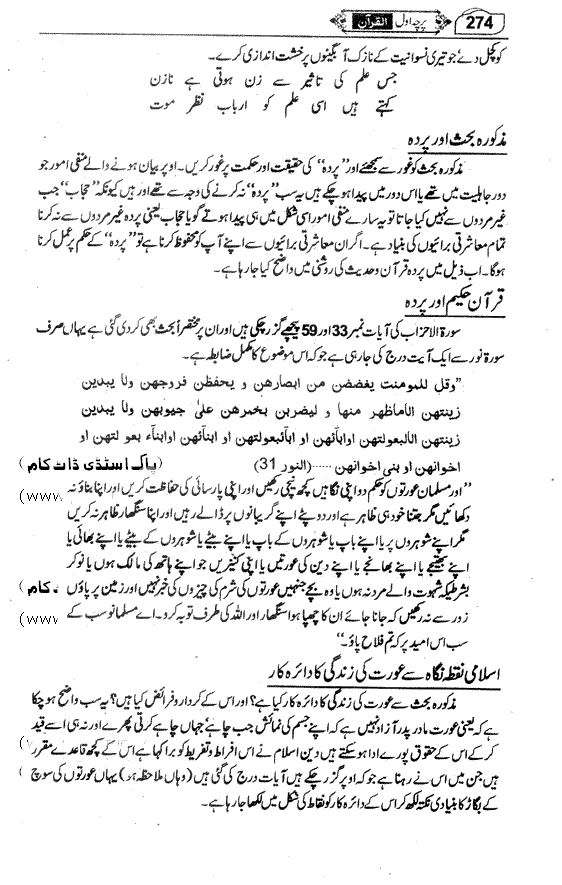 274 پرچہ اول القرآن
کو کچل دے جو تیری نسوانیت کے نازک آبگینوں پر خشت اندازی کرے۔
جس علم کی تاثیر سے زن ہوتی ہے نازن
کہتے ہیں اسی علم کو ارباب نظر موت
مذکورہ بحث اور پردہ
مذکورہ بحث کو غور سے سمجھئے اور ”پردہ“ کی حقیقت اور حکمت پر غور کریں۔ اوپر بیان ہونے والے منفی امور جو
دور جاہلیت میں تھے یا اس دور میں پیدا ہو چکے ہیں یہ سب ”پردہ“ نہ کرنے کی وجہ سے تھے اور ہیں کیونکہ ”حجاب“ جب
غیر مردوں سے نہیں کیا جاتا تو یہ سارے منفی امور اسی شکل میں ہی پیدا ہوتے گویا حجاب یعنی پردہ غیر مردوں سے نہ کرنا
تمام معاشرتی برائیوں کی بنیاد ہے۔ اگر ان معاشرتی برائیوں سے اپنے آپ کو محفوظ کرنا ہے تو ”پردہ“ کے حکم پر عمل کرنا
ہوگا۔ اب ذیل میں پردہ قرآن و حدیث کی روشنی میں واضح کیا جا رہا ہے۔
قرآن حکیم اور پردہ
سورۃ الاحزاب کی آیات نمبر 33 اور 59 پیچھے گزر چکی ہیں اور ان پر مختصراً بحث بھی کر دی گئی ہے یہاں صرف
سورۃ نور سے ایک آیت درج کی جا رہی ہے جو کہ اس موضوع کا مکمل ضابطہ ہے۔
”وقل للمومنت یغضضن من ابصارھن و یحفظن فروجھن ولا یبدین
زینتھن الاماظھر منھا و لیضربن بخمرھن علیٰ جیوبھن ولا یبدین
زینتھن الالبعولتھن اوابآئھن او ابآئبعولتھن او ابنآئھن او ابنآء بعو لتھن او
اخوانھن او بنی اخوانھن .....(النور 31) (پاک اسٹڈی ڈاٹ کام
”اور مسلمان عورتوں کو حکم دو اپنی نگاہیں کچھ نیچی رکھیں اور اپنی پارسائی کی حفاظت کریں اور اپنا بناؤ نہ (www
دکھائیں مگر جتنا خود ہی ظاہر ہے اور دوپٹے اپنے گریبانوں پر ڈالے رہیں اور اپنا سنگھار ظاہر نہ کریں
مگر اپنے شوہروں پر یا اپنے باپ یا شوہروں کے باپ یا اپنے بیٹے یا شوہروں کے بیٹے یا اپنے بھائی یا
اپنے بھتیجے یا اپنے بھانجے یا اپنے دین کی عورتیں یا اپنی کنیزیں جو اپنے ہاتھ کی مالک ہوں یا نوکر
بشرطیکہ شہوت والے مرد نہ ہوں یا وہ بچے جنہیں عورتوں کی شرم کی چیزوں کی خبر نہیں اور زمین پر پاؤں کام
زور سے نہ رکھیں کہ جانا جائے ان کا چھپا ہوا سنگھار اور اللہ کی طرف توبہ کرو۔ اے مسلمانو سب کے (www
سب اس امید پر کہ تم فلاح پاؤ۔“
اسلامی نقطہ نگاہ سے عورت کی زندگی کا دائرہ کار
مذکورہ بحث سے عورت کی زندگی کا دائرہ کار کیا ہے؟ اور اس کے کردار و فرائض کیا ہیں؟ یہ سب واضح ہو چکا
ہے کہ یعنی عورت مادر پدر آزاد نہیں ہے کہ اپنے جسم کی نمائش جب چاہے جہاں چاہے کرتی پھرے اور نہ ہی اسے قید
کر کے اس کے حقوق پورے ادا ہو سکتے ہیں دین اسلام نے اس افراط و تفریط کو برا کہا ہے اس کے کچھ قاعدے مقرر
ہیں جن میں اس نے رہنا ہے جو کہ اوپر گزر چکے ہیں آیات درج کی گئی ہیں (وہاں ملاحظہ ہو) یہاں عورتوں کی سوچ
کے بگاڑ کا بنیادی نکتہ لکھ کر اس کے دائرہ کار کو نقاط کی شکل میں لکھا جا رہا ہے۔